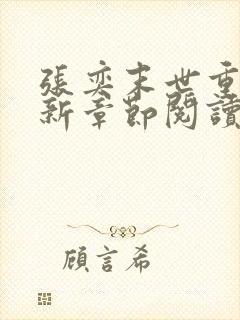 張奕末世重
新章節閱讀
顧言希